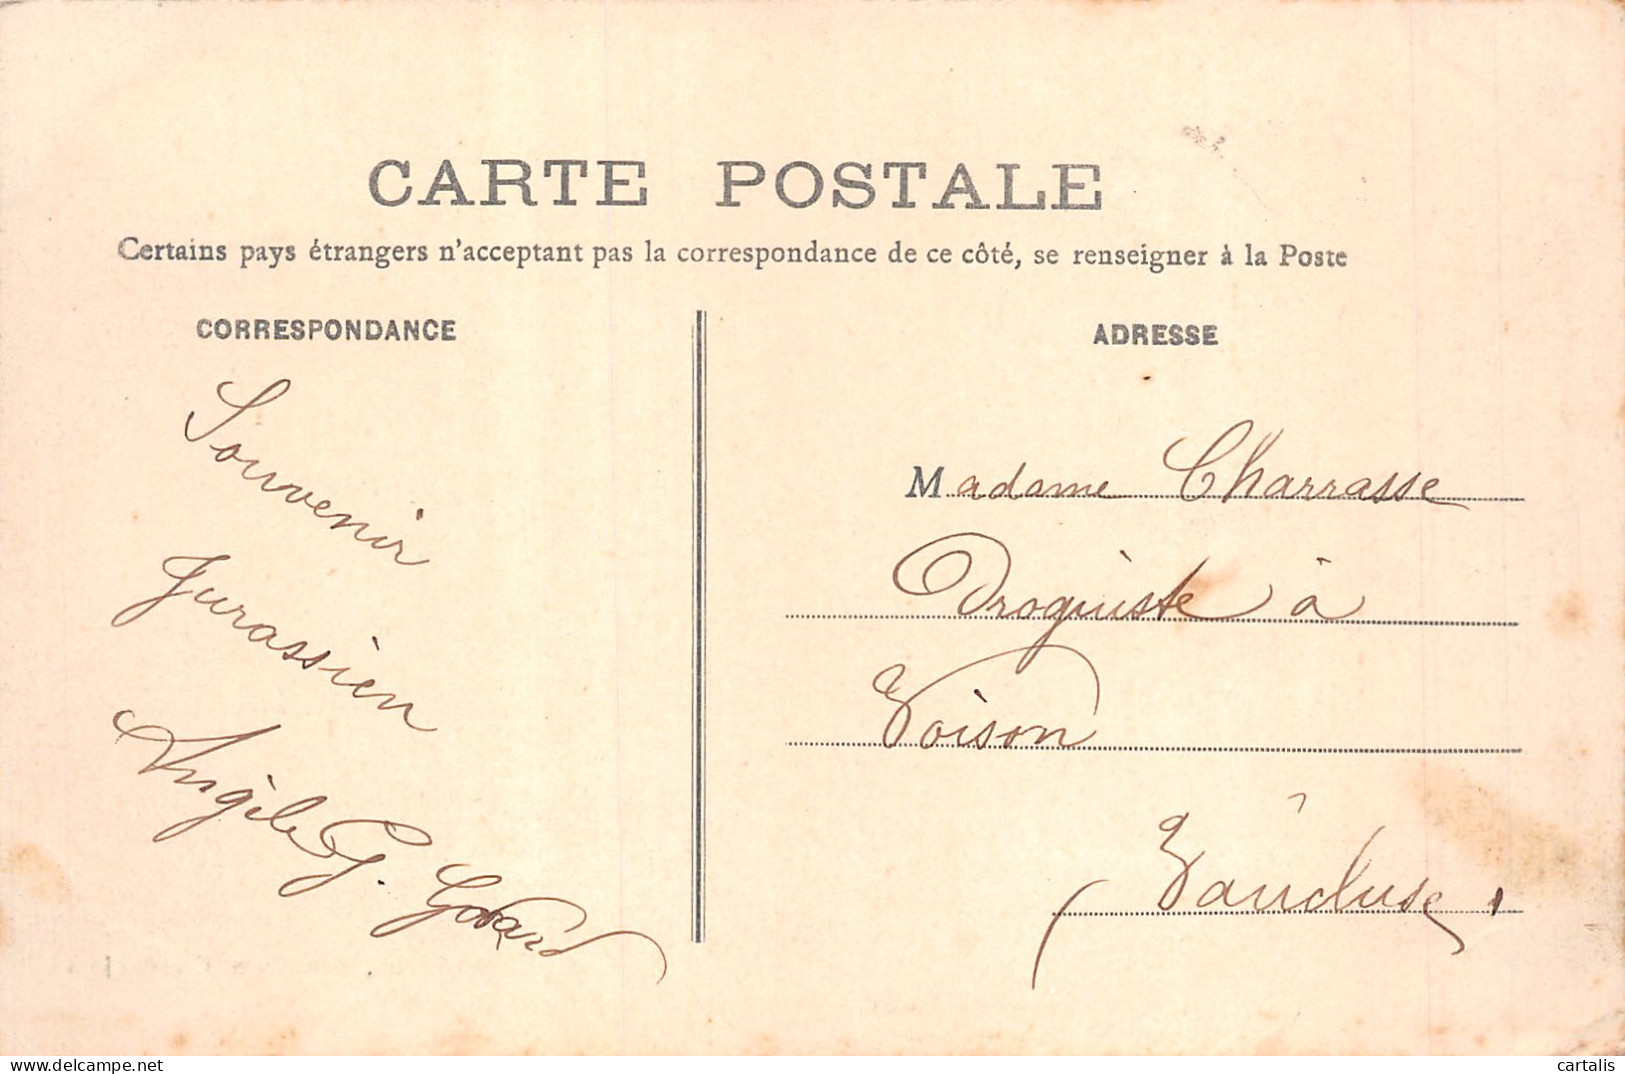 CARTE POSTALE
Certains pays étrangers n'acceptant pas la correspondance de ce côté, se renseigner à la Poste
CORRESPONDANCE
Souvenir
Jurassien
Angèle G.
ADRESSE
Madame Charrasse
Droguiste à
Vaison
Vaucluse
delcampe.net
cartalis